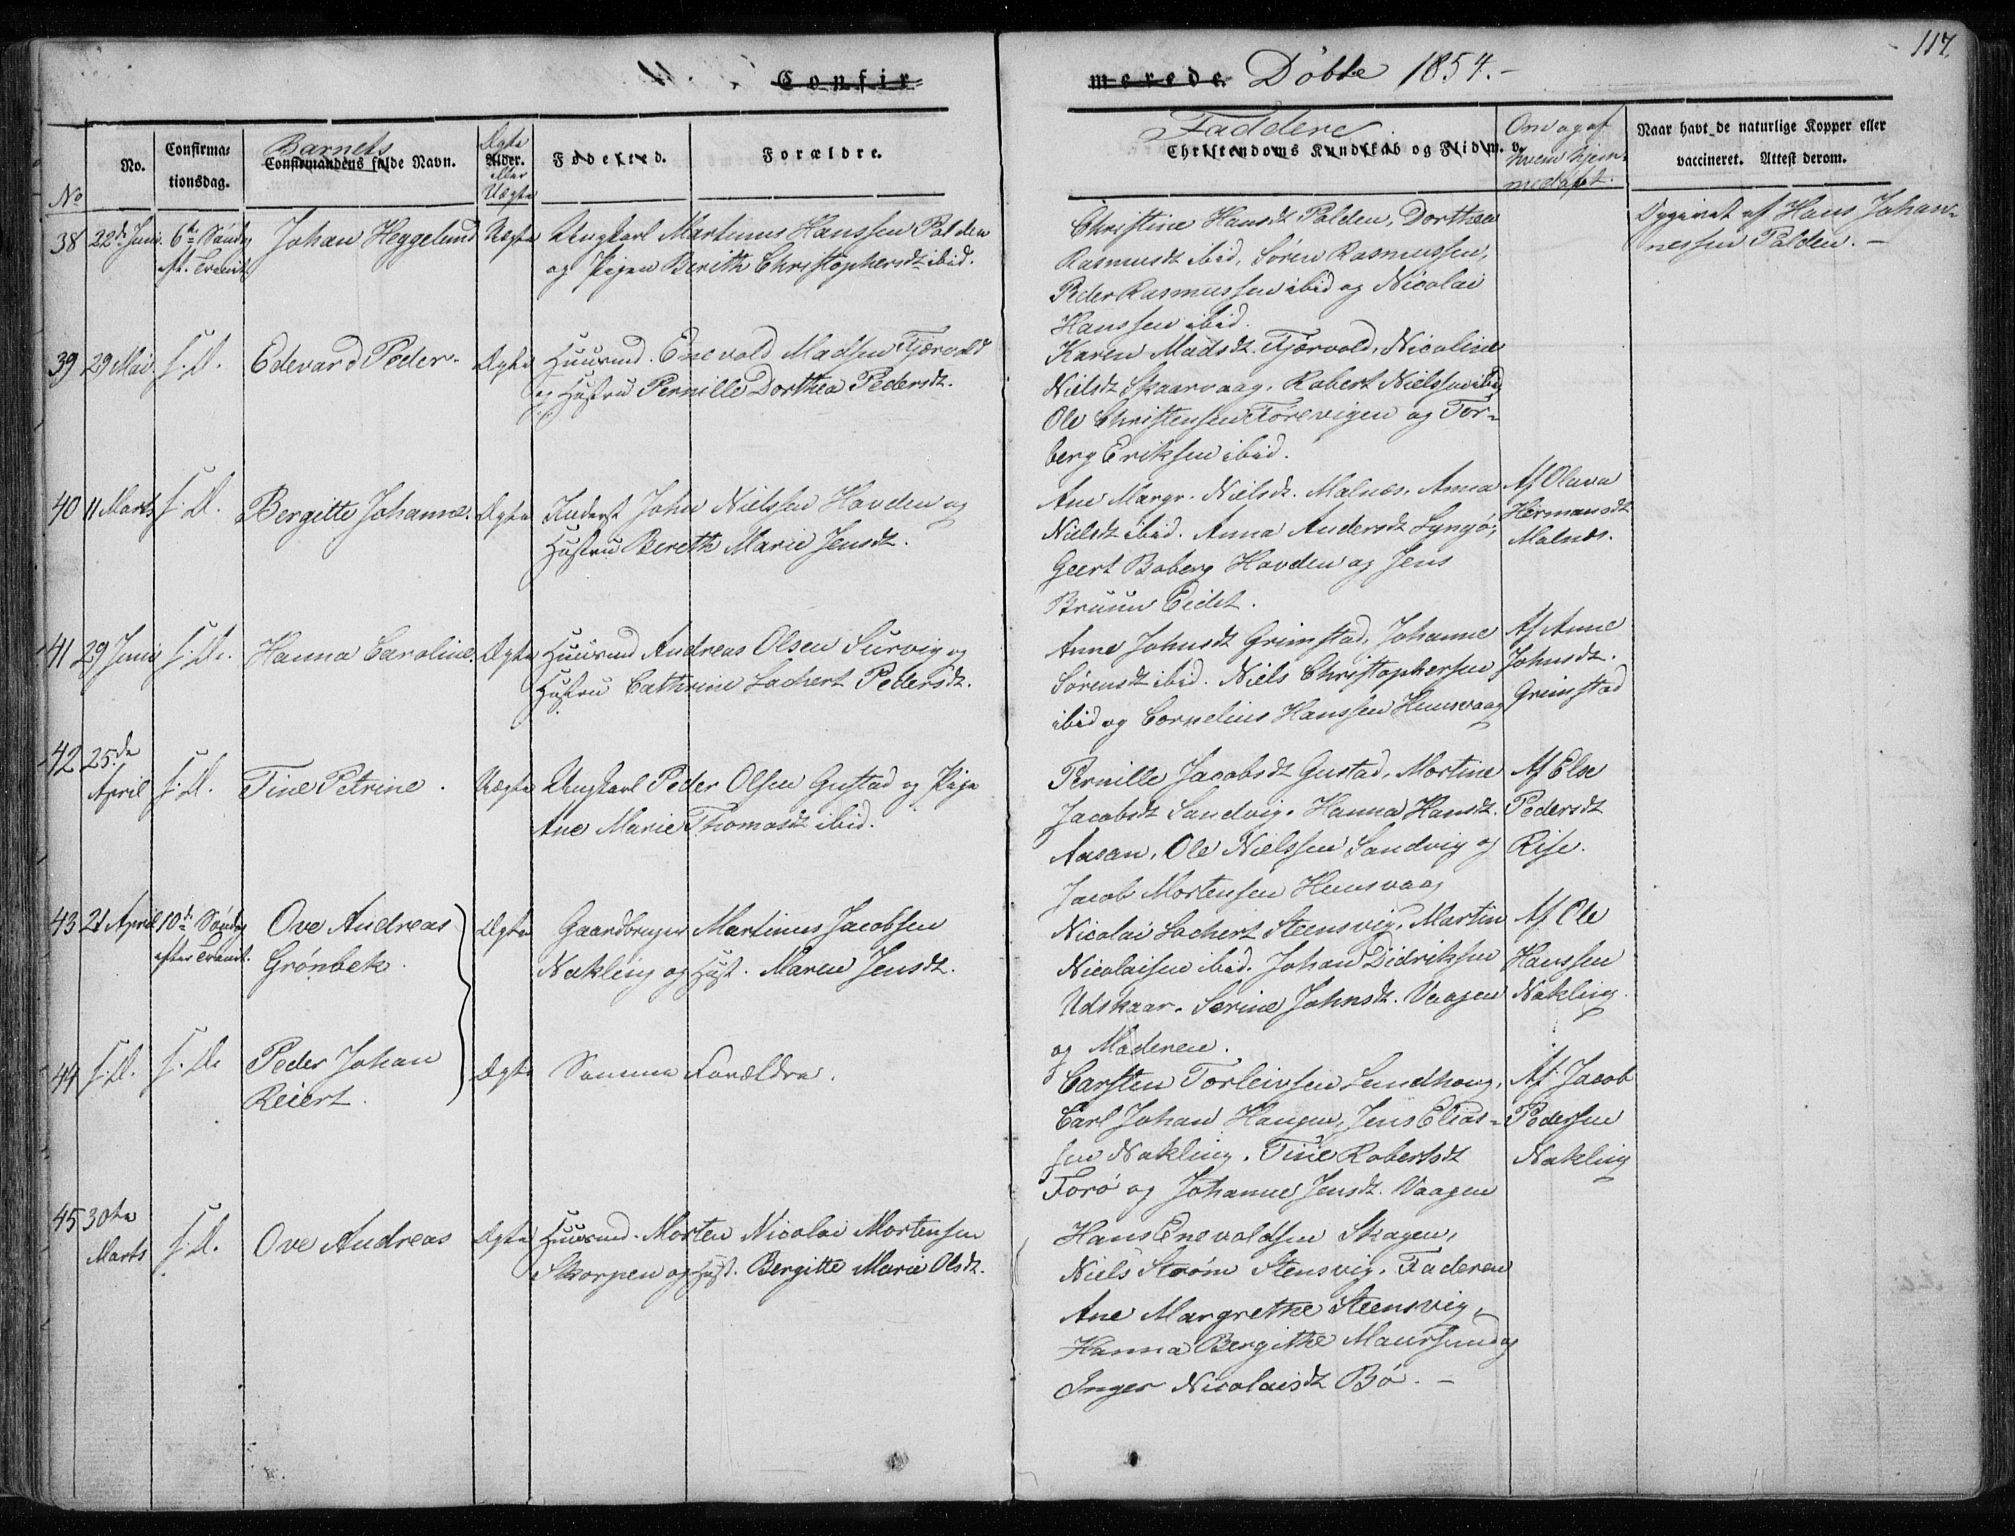 117.
Confir
merede. Döbte 1854.-
No
No.
Confirma-
tionsdag.
Barnets
Confirmandens fulde Navn.
Ægte
Alder.
eller
Uægte
Fødested.
Forældre.
Faddere.
Christendoms Kundskab og Flid m. v.
Om og af
hvem hjem-
medøpt.
Naar havt de naturlige Kopper eller
vaccineret. Attest derom.
38 22de Juni 6te Söndag Johan Heggelund Uægte Ungkarl Martinus Hanssen Palden
eft. Trinit og Pigen Berith Christophersdt ibid.
Christine Hansdt Palden, Dorthea
Rasmusdt ibid, Sören Rasmussen,
Peder Rasmussen ibid og Nicolai
Hanssen ibid.
Opgivet af Hans Johan-
nessen Palden. -
39 29 Mai s. D. Edevard Peder. Ægte Huusmd. Enevold Madsen Fjærvold
og Hustru Pernille Dorthea Pedersdt.
Karen Madsdt. Fjærvold, Nicoline
Nielsdt Skaarvaag, Robert Nielssen ibid
Ole Christensen Förevigen og Tor-
berg Eriksen ibid.
40 11 Marts s. D. Bergitte Johanne. Ægte Inderst John Nielssen Hovden og
Hustru Bereth Marie Jensdt.
Ane Margr. Nielsdt. Malnes, Anna
Nielsdt ibid. Anna Andersdt Lyngö,
Geert Boberg Hovden og Jens
Bruun Eidet.
Af Olava
Hermansdt
Malnes.
41 29 Juni s. D. Hanna Caroline. Ægte Huusmd Andreas Olsen Survig og
Hustru Cathrine Lochert Pedersdt.
Anne Johnsdt Grimstad, Johanne
Sörensdt ibid. Niels Christophersen
ibid og Cornelius Hanssen Hunsvaag
Af Anne
Johnsdt.
Grimstad
42 25de
April s. D. Tine Petrine. Uægte Ungkarl Peder Olsen Gustad og Pige
Ane Marie Thomasdt ibid.
Pernille Jacobsdt Gustad, Mortine
Jacobsdt Sandvig, Hanna Hansdt.
Aasan, Ole Nielssen Sandvig og
Jacob Mortensen Hunsvaag
Af Else
Pedersdt
Rise.
43 21 April 10de Söndag Ove Andreas Ægte Gaardbruger Martinus Jacobsen
efter Trinit. Grönbek. Nökling og Hust. Maren Jensdt.
Nicolai Lochert Steensvig, Martin
Nicolaisen ibid. Johan Didriksen
Udskaar. Serine Johnsdt. Vaagen
og Moderen.
Af Ole
Hanssen
Nökling.
44 s. D. s. D. Peder Johan Ægte Samme Forældre.
Reiert.
Carsten Torleivsen Lundhoug,
Carl Johan Haugen, Jens Elias-
sen Nökling, Tine Robertsdt
Forö og Johanne Jensdt. Vaagen
Af Jacob
Pedersen
Nökling
45 30te
Marts s. D. Ove Andreas Ægte Huusmd. Morten Nicolai Mortensen
Skorpen og Hust. Bergitte Marie Olsdt.
Hans Enevoldsen Skagen,
Niels Ström Stensvig. Faderen
Ane Margrethe Steensvig,
Hanna Bergithe Maursund og
Inger Nicolaisdt Bö. -